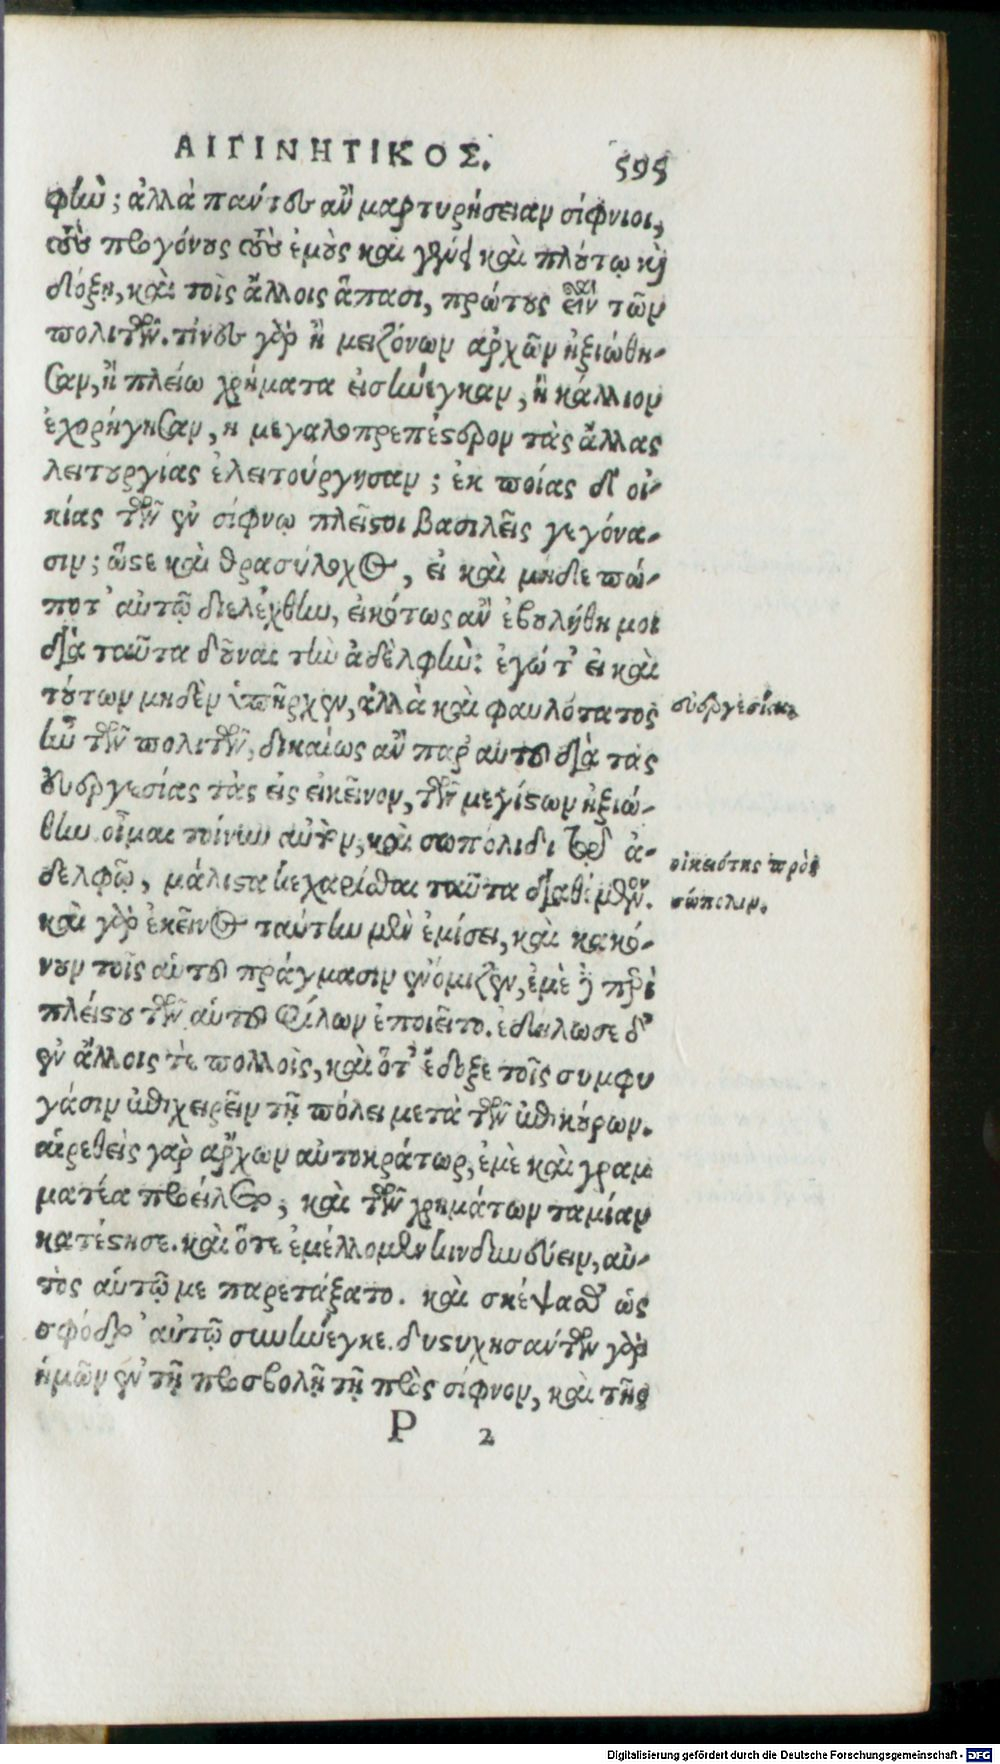 ΑΙΓΙΝΗΤΙΚΟΣ. 595
φήν; ἀλλὰ πάντες ἂν μαρτυρήσειαν σίφνιοι,
τοὺς προγόνους τοὺς ἐμοὺς καὶ γένει καὶ πλούτῳ καὶ
δόξῃ, καὶ τοῖς ἄλλοις ἅπασι, πρώτους εἶναι τῶν
πολιτῶν. τίνες γὰρ ἢ μειζόνων ἀρχῶν ἠξιώθη-
σαν, ἢ πλείω χρήματα εἰσήνεγκαν, ἢ κάλλιον
ἐχορήγησαν, ἢ μεγαλοπρεπέστερον τὰς ἄλλας
λειτουργίας ἐλειτούργησαν; ἐκ ποίας δ' οἰ-
κίας τῶν ἐν σίφνῳ πλεῖστοι βασιλεῖς γεγόνα-
σιν; ὥστε καὶ θρασύλοχος, εἰ καὶ μηδὲ πώ-
ποτ' αὐτῷ διελέχθην, εἰκότως ἂν ἐβουλήθη μοι
διὰ ταῦτα δοῦναι τὴν ἀδελφήν: ἐγώ τ' εἰ καὶ
τούτων μηδὲν ὑπῆρχεν, ἀλλὰ καὶ φαυλότατος
ἦν τῶν πολιτῶν, δικαίως ἂν παρ' αὐτοῦ διὰ τὰς
εὐεργεσίας τὰς εἰς ἐκεῖνον, τῶν μεγίστων ἠξιώ-
θην. οἶμαι τοίνυν αὐτὸν, καὶ σωπόλιδι τῷ ἀ-
δελφῷ, μάλιστα κεχαρίσθαι ταῦτα διαθέμενον.
καὶ γὰρ ἐκεῖνος ταύτην μὲν ἐμίσει, καὶ κακό-
νουν τοῖς αὑτοῦ πράγμασιν ἐνόμιζεν, ἐμὲ δὲ περὶ
πλείστου τῶν αὑτοῦ φίλων ἐποιεῖτο. ἐδήλωσε δ'
ἐν ἄλλοις τε πολλοῖς, καὶ ὅτ' ἔδοξε τοῖς συμφυ
γάσιν ἐπιχειρεῖν τῇ πόλει μετὰ τῶν ἐπικούρων.
αἱρεθεὶς γὰρ ἄρχων αὐτοκράτωρ, ἐμὲ καὶ γραμ
ματέα προείλετο, καὶ τῶν χρημάτων ταμίαν
κατέστησε. καὶ ὅτε ἐμέλλομεν κινδυνεύειν, αὐ-
τὸς αὑτῷ με παρετάξατο. καὶ σκέψασθε ὡς
σφόδρ' αὐτῷ συνήνεγκε. δυστυχησάντων γὰρ
ἡμῶν ἐν τῇ προσβολῇ τῇ πρὸς σίφνον, καὶ τῆς
P 2
εὐεργεσίαι
οἰκειότης πρὸς
σώπολιν.
Digitalisierung gefördert durch die Deutsche Forschungsgemeinschaft - DFG